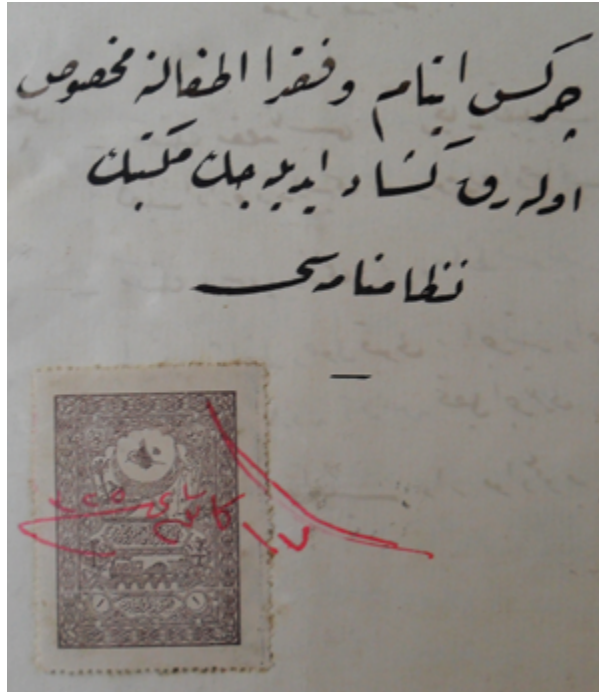 چركس ایتام و فقرا اطفالنه مخصوص
اوله رق كشاد ایدیله جك مكتبك
نظامنامه سی